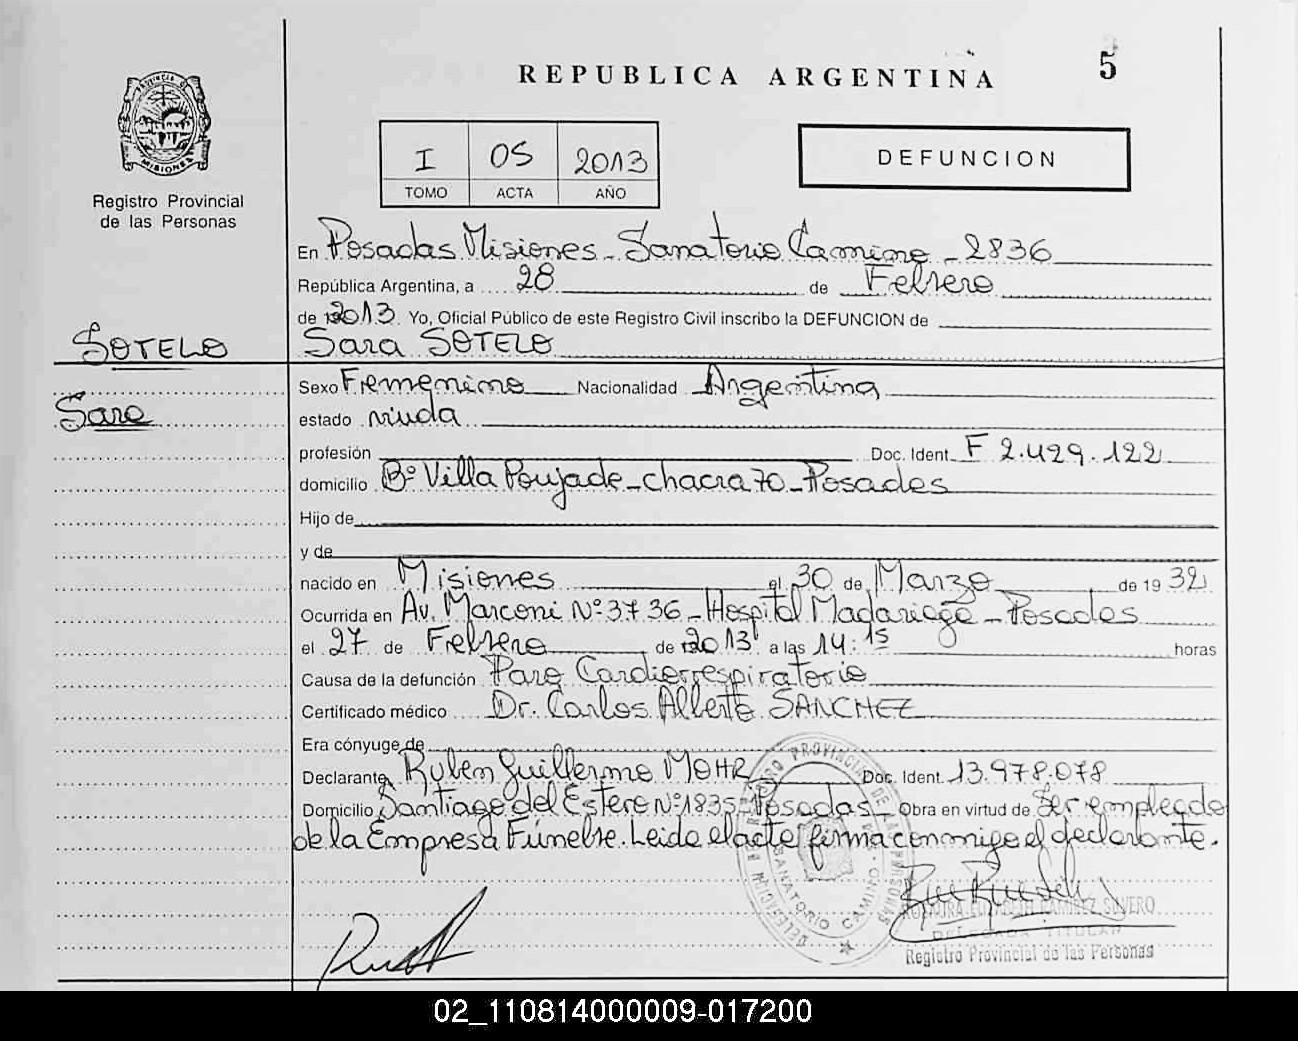 5
REPUBLICA ARGENTINA
PROVINCIA DE MISIONES
Registro Provincial
de las Personas
I OS 2013
TOMO ACTA AÑO
DEFUNCION
En Posadas Misiones - Sanatorio Camino - 2836
República Argentina, a 28 de Febrero
de 2013. Yo, Oficial Público de este Registro Civil inscribo la DEFUNCION de
SOTELO
Sara SOTELO
Sara
Sexo Femenino Nacionalidad Argentina
estado viuda
profesión Doc. Ident. F 2.429.122
domicilio Bº Villa Poujade - chacra 70 - Posadas
Hijo de
y de
nacido en Misiones el 30 de Marzo de 19 32
Ocurrida en Av. Marconi Nº 3736 - Hospital Madariaga - Posadas
el 27 de Febrero de 2013 a las 14:15 horas
Causa de la defunción Paro Cardiorrespiratorio
Certificado médico Dr. Carlos Alberto SANCHEZ
Era cónyuge de
Declarante Ruben Guillermo MOHR Doc. Ident. 13.978.078
Domicilio Santiago del Estero Nº 1835 - Posadas Obra en virtud de Ser empleado
de la Empresa Fúnebre. Leida el acta firma conmigo el declarante.
SANATORIO CAMINO
RAMIREZ SILVERO
DELEGADA TITULAR
Registro Provincial de las Personas
02_110814000009-017200